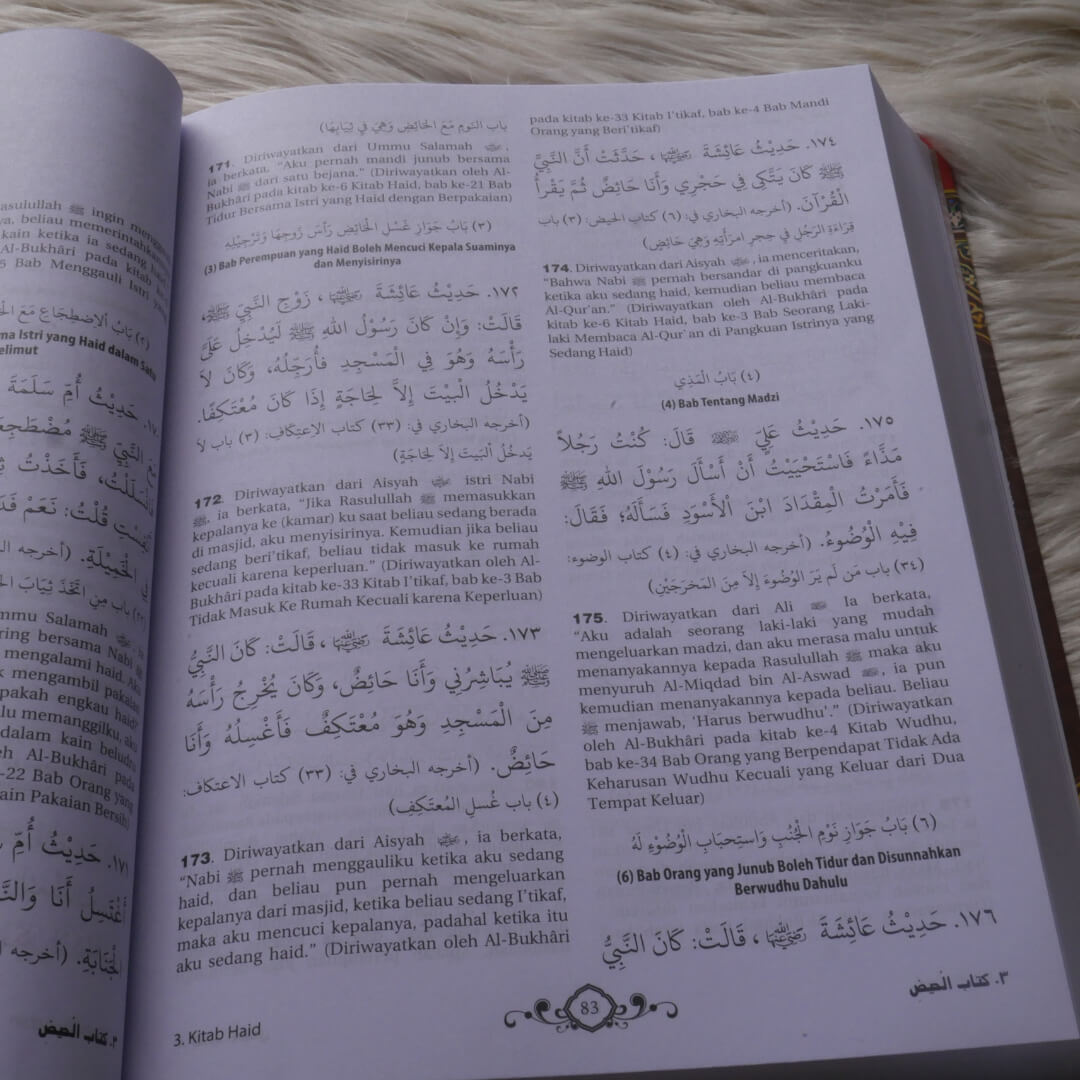 Rasulullah ﷺ ingin
beliau memerintahkan
kain ketika ia sedang
Al-Bukhâri pada kitab
5 Bab Menggauli Istri yang
(٢) بَابُ الاِضْطِجَاعِ مَعَ
Istri yang Haid dalam Satu
حَدِيْثُ أُمِّ سَلَمَةَ
النَّبِيِّ ﷺ مُضْطَجِعَةٌ
فَأَخَذْتُ
قُلْتُ: نَعَمْ
الْخَمِيْلَةِ. (أخرجه
باب مِنِ اتَّخَذَ ثِيَابَ
Ummu Salamah
bersama Nabi ﷺ
mengalami haid. Aku
mengambil pakaian
engkau haid?
memanggilku, aku
dalam kain beludru
Al-Bukhâri pada
-22 Bab Orang yang
Pakaian Bersih)
١٧١. حَدِيْثُ أُمِّ
أَغْتَسِلُ أَنَا
الْجَنَابَةِ. (أخرجه
٣. كتاب الحيض
باب النَّومِ مَعَ الحَائِضِ وَهِيَ فِي ثِيَابِهَا)
171. Diriwayatkan dari Ummu Salamah ,
ia berkata, "Aku pernah mandi junub bersama
Nabi ﷺ dari satu bejana." (Diriwayatkan oleh Al-
Bukhâri pada kitab ke-6 Kitab Haid, bab ke-21 Bab
Tidur Bersama Istri yang Haid dengan Berpakaian)
(٣) بَابُ جَوَازِ غَسْلِ الْحَائِضِ رَأْسَ زَوْجِهَا وَتَرْجِيْلِهِ
(3) Bab Perempuan yang Haid Boleh Mencuci Kepala Suaminya
dan Menyisirinya
١٧٢. حَدِيْثُ عَائِشَةَ ، زَوْجِ النَّبِيِّ ﷺ،
قَالَتْ: وَإِنْ كَانَ رَسُوْلُ اللهِ ﷺ لَيُدْخِلُ عَلَيَّ
رَأْسَهُ وَهُوَ فِي الْمَسْجِدِ فَأُرَجِّلُهُ، وَكَانَ لاَ
يَدْخُلُ الْبَيْتَ إِلاَّ لِحَاجَةٍ إِذَا كَانَ مُعْتَكِفًا.
(أخرجه البخاري في: (٣٣) كتاب الاعتكاف: (٣) باب لاَ
يَدخُلُ البَيتَ إِلاَ لِحَاجَةٍ)
172. Diriwayatkan dari Aisyah istri Nabi
ﷺ, ia berkata, "Jika Rasulullah ﷺ memasukkan
kepalanya ke (kamar) ku saat beliau sedang berada
di masjid, aku menyisirinya. Kemudian jika beliau
sedang beri'tikaf, beliau tidak masuk ke rumah
kecuali karena keperluan." (Diriwayatkan oleh Al-
Bukhâri pada kitab ke-33 Kitab I'tikaf, bab ke-3 Bab
Tidak Masuk Ke Rumah Kecuali karena Keperluan)
١٧٣. حَدِيْثُ عَائِشَةَ ، قَالَتْ: كَانَ النَّبِيُّ
ﷺ يُبَاشِرُنِي وَأَنَا حَائِضٌ، وَكَانَ يُخْرِجُ رَأْسَهُ
مِنَ الْمَسْجِدِ وَهُوَ مُعْتَكِفٌ فَأَغْسِلُهُ وَأَنَا
حَائِضٌ. (أخرجه البخاري في: (٣٣) كتاب الاعتكاف:
(٤) باب غُسلِ المُعتَكِفِ)
173. Diriwayatkan dari Aisyah , ia berkata,
"Nabi ﷺ pernah menggauliku ketika aku sedang
haid, dan beliau pun pernah mengeluarkan
kepalanya dari masjid, ketika beliau sedang I'tikaf,
maka aku mencuci kepalanya, padahal ketika itu
aku sedang haid." (Diriwayatkan oleh Al-Bukhâri
pada kitab ke-33 Kitab I'tikaf, bab ke-4 Bab Mandi
Orang yang Beri'tikaf)
١٧٤. حَدِيْثُ عَائِشَةَ ، حَدَّثَتْ أَنَّ النَّبِيَّ
ﷺ كَانَ يَتَّكِئُ فِي حَجْرِي وَأَنَا حَائِضٌ ثُمَّ يَقْرَأُ
الْقُرْآنَ. (أخرجه البخاري في: (٦) كتاب الحيض: (٣) باب
قِرَاءَةِ الرَّجُلِ فِي حِجرِ امرَأَتِهِ وَهِيَ حَائِضٌ)
174. Diriwayatkan dari Aisyah , ia menceritakan,
"Bahwa Nabi ﷺ pernah bersandar di pangkuanku
ketika aku sedang haid, kemudian beliau membaca
Al-Qur'an." (Diriwayatkan oleh Al-Bukhâri pada
kitab ke-6 Kitab Haid, bab ke-3 Bab Seorang Laki-
laki Membaca Al-Qur'an di Pangkuan Istrinya yang
Sedang Haid)
(٤) بَابُ الْمَذِي
(4) Bab Tentang Madzi
١٧٥. حَدِيْثُ عَلِيٍّ قَالَ: كُنْتُ رَجُلاً
مَذَّاءً فَاسْتَحْيَيْتُ أَنْ أَسْأَلَ رَسُوْلَ اللهِ ﷺ
فَأَمَرْتُ الْمِقْدَادَ ابْنَ الْأَسْوَدِ فَسَأَلَهُ؛ فَقَالَ:
فِيْهِ الْوُضُوْءُ. (أخرجه البخاري في: (٤) كتاب الوضوء:
(٣٤) باب مَن لَم يَرَ الوُضُوءَ إِلاَ مِنَ المَخرَجَينِ)
175. Diriwayatkan dari Ali Ia berkata,
"Aku adalah seorang laki-laki yang mudah
mengeluarkan madzi, dan aku merasa malu untuk
menanyakannya kepada Rasulullah ﷺ maka aku
menyuruh Al-Miqdad bin Al-Aswad , ia pun
kemudian menanyakannya kepada beliau. Beliau
ﷺ menjawab, 'Harus berwudhu'." (Diriwayatkan
oleh Al-Bukhâri pada kitab ke-4 Kitab Wudhu,
bab ke-34 Bab Orang yang Berpendapat Tidak Ada
Keharusan Wudhu Kecuali yang Keluar dari Dua
Tempat Keluar)
(٦) بَابُ جَوَازِ نَوْمِ الْجُنُبِ وَاسْتِحْبَابِ الْوُضُوْءِ لَهُ
(6) Bab Orang yang Junub Boleh Tidur dan Disunnahkan
Berwudhu Dahulu
١٧٦. حَدِيْثُ عَائِشَةَ ، قَالَتْ: كَانَ النَّبِيُّ
3. Kitab Haid
83
٣. كتاب الحيض